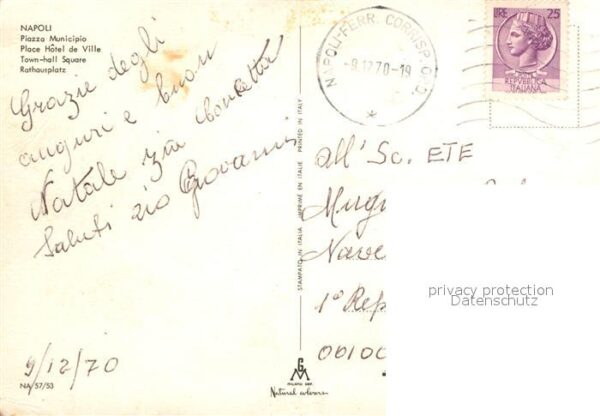 NAPOLI
Piazza Municipio
Place Hôtel de Ville
Town-hall Square
Rathausplatz
Grazie degli
auguri e buon
Natale zia Concetta
Saluti zio Giovanni
9/12/70
NA/57/53
STAMPATO IN ITALIA IMPRIMÉ EN ITALIE PRINTED IN ITALY
Natural colours
NAPOLI-FERR. CORRISP.
-9.12.70-19
LIRE 25
REPVBBLICA
ITALIANA
all' Sc. ETE
Nave
1º Rep
00100
privacy protection
Datenschutz